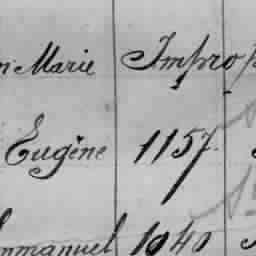 n Marie Impro
Eugène 1157
mmanuel 1040